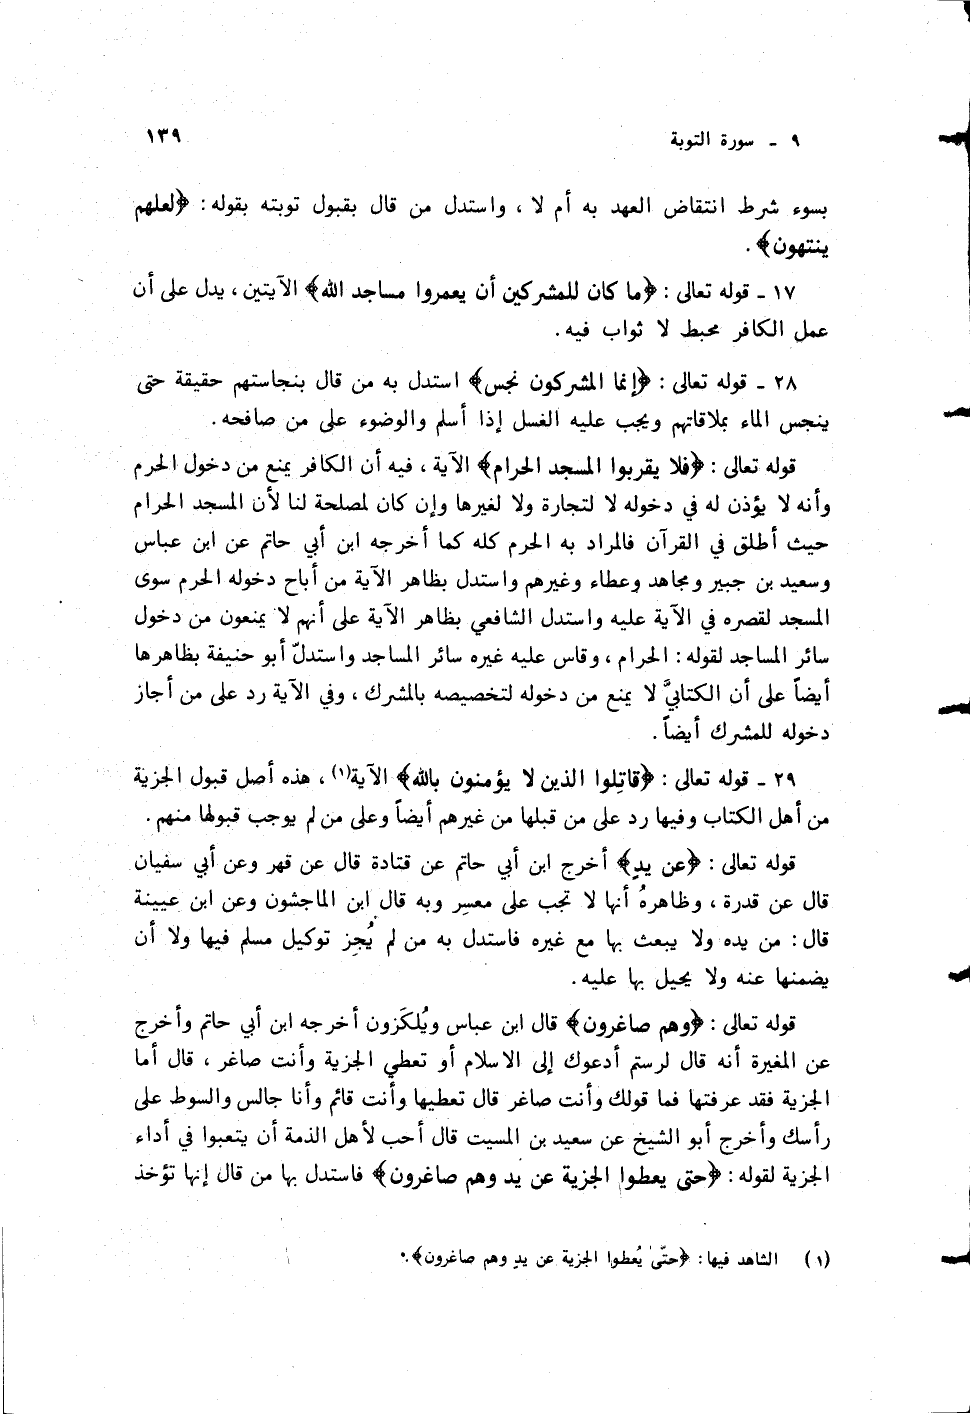 ٩ - سورة التوبة ١٣٩
بسوء شرط انتقاض العهد به أم لا ، واستدل من قال بقبول توبته بقوله : ﴿لعلهم
ينتهون﴾ .
١٧ - قوله تعالى : ﴿ما كان للمشركين أن يعمروا مساجد الله﴾ الآيتين ، يدل على أن
عمل الكافر محبط لا ثواب فيه .
٢٨ - قوله تعالى : ﴿إنما المشركون نجس﴾ استدل به من قال بنجاستهم حقيقة حتى
ينجس الماء بملاقاتهم ويجب عليه الغسل إذا أسلم والوضوء على من صافحه .
قوله تعالى : ﴿فلا يقربوا المسجد الحرام﴾ الآية ، فيه أن الكافر يمنع من دخول الحرم
وأنه لا يؤذن له في دخوله لا لتجارة ولا لغيرها وإن كان لمصلحة لنا لأن المسجد الحرام
حيث أطلق في القرآن فالمراد به الحرم كله كما أخرجه ابن أبي حاتم عن ابن عباس
وسعيد بن جبير ومجاهد وعطاء وغيرهم واستدل بظاهر الآية من أباح دخوله الحرم سوى
المسجد لقصره في الآية عليه واستدل الشافعي بظاهر الآية على أنهم لا يمنعون من دخول
سائر المساجد لقوله : الحرام ، وقاس عليه غيره سائر المساجد واستدلّ أبو حنيفة بظاهرها
أيضاً على أن الكتابيَّ لا يمنع من دخوله لتخصيصه بالمشرك ، وفي الآية رد على من أجاز
دخوله للمشرك أيضاً .
٢٩ - قوله تعالى : ﴿قاتِلوا الذين لا يؤمنون بالله﴾ الآية(١) ، هذه أصل قبول الجزية
من أهل الكتاب وفيها رد على من قبلها من غيرهم أيضاً وعلى من لم يوجب قبولها منهم .
قوله تعالى : ﴿عن يدٍ﴾ أخرج ابن أبي حاتم عن قتادة قال عن قهر وعن أبي سفيان
قال عن قدرة ، وظاهرهُ أنها لا تجب على معسِر وبه قال ابن الماجشون وعن ابن عيينة
قال : من يده ولا يبعث بها مع غيره فاستدل به من لم يُجِز توكيل مسلم فيها ولا أن
يضمنها عنه ولا يحيل بها عليه .
قوله تعالى : ﴿وهم صاغرون﴾ قال ابن عباس ويُلكَزون أخرجه ابن أبي حاتم وأخرج
عن المغيرة أنه قال لرستم أدعوك إلى الاسلام أو تعطي الجزية وأنت صاغر ، قال أما
الجزية فقد عرفتها فما قولك وأنت صاغر قال تعطيها وأنت قائم وأنا جالس والسوط على
رأسك وأخرج أبو الشيخ عن سعيد بن المسيت قال أحب لأهل الذمة أن يتعبوا في أداء
الجزية لقوله : ﴿حتى يعطوا الجزية عن يد وهم صاغرون﴾ فاستدل بها من قال إنها تؤخذ
(١) الشاهد فيها : ﴿حتّى يُعطوا الجزية عن يدٍ وهم صاغرون﴾ .